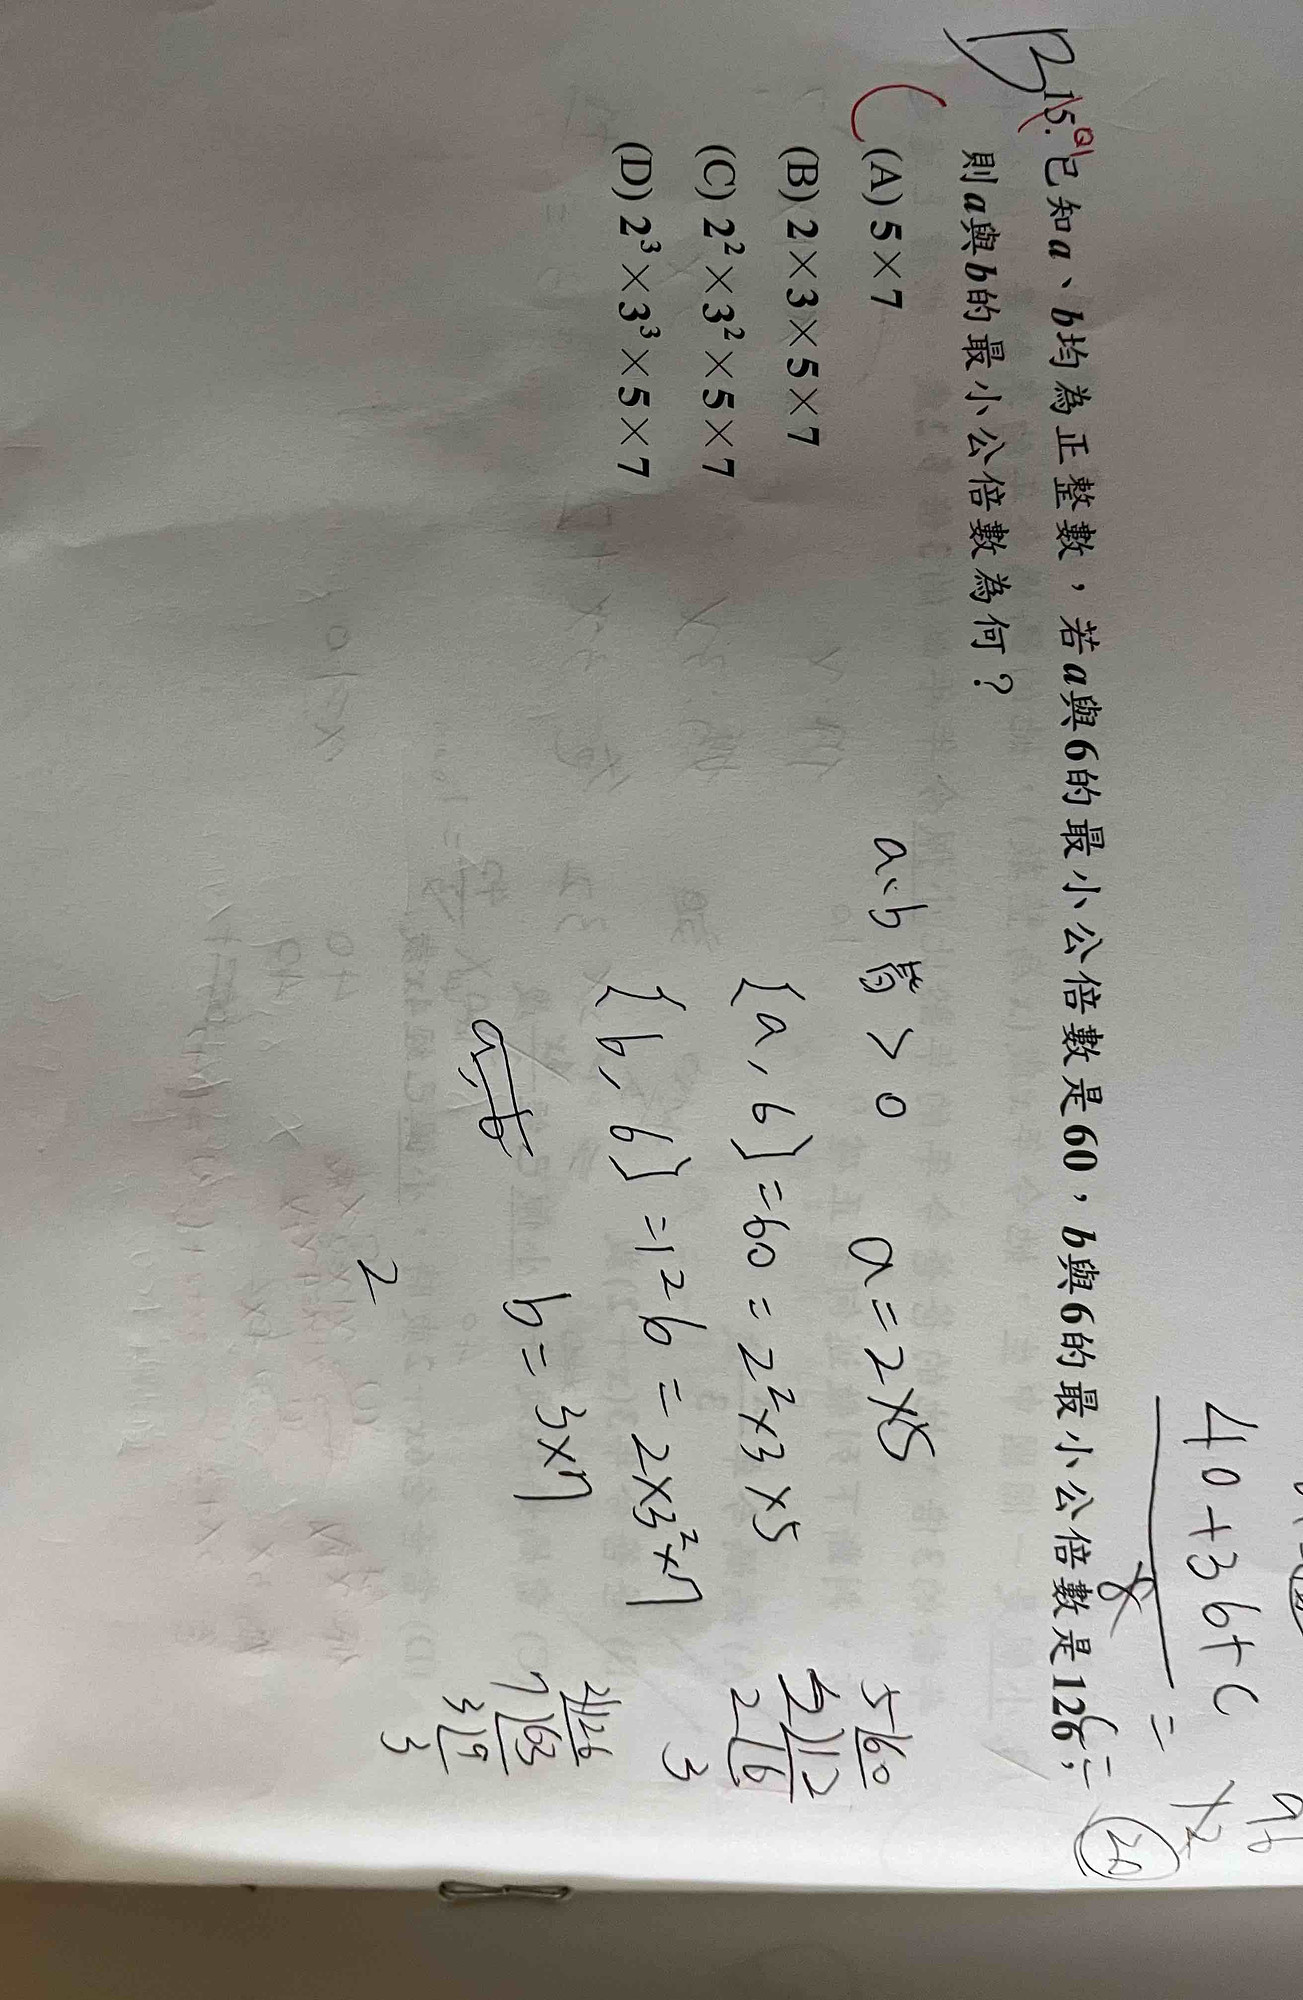 40+3b+c
B 15. 已知a、b均為正整數，若a與6的最小公倍數是60，b與6的最小公倍數是126，
則a與b的最小公倍數為何？
(A) 5×7
(B) 2×3×5×7
(C) 2²×3²×5×7
(D) 2³×3³×5×7
a、b 皆 > 0
a=2×5
[a, 6]=60=2²×3×5
[b, 6]=126=2×3²×7
a、b
b=3×7
2
5|60
2|12
2|6
3
2|126
7|63
3|9
3